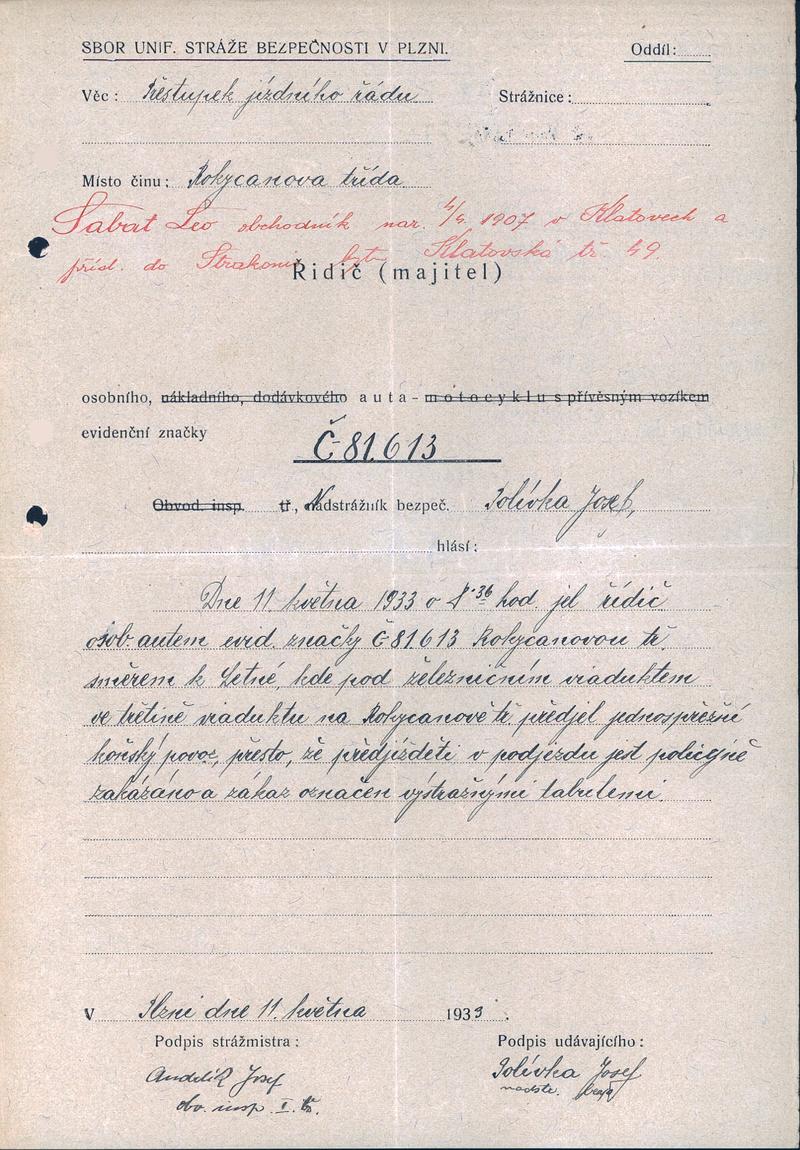 SBOR UNIF. STRÁŽE BEZPEČNOSTI V PLZNI. Oddíl:
Věc: Přestupek jízdního řádu Strážnice:
Místo činu: Rokycanova třída
Sabat Leo obchodník nar. 4/4. 1907 v Klatovech a
přísl. do Strakonic bytem Klatovská tř. 49
Řidič (majitel)
osobního, nákladního, dodávkového auta - motocyklu s přívěsným vozíkem
evidenční značky
Č-81.613
Obvod. insp. tř., Nadstrážník bezpeč. Polívka Josef,
hlásí:
Dne 11. května 1933 o hod. jel řidič
osob. autem evid. značky Č-81.613 Rokycanovou tř.
směrem k Letné, kde pod železničním viaduktem
ve třetině viaduktu na Rokycanově tř. předjel jednospřežní
koňský povoz, přesto, že předjížděti v podjezdu jest policejně
zakázáno a zákaz označen výstražnými tabulemi.
V Plzni dne 11. května 1933.
Podpis strážmistra: Podpis udávajícího:
Josef Polívka Josef
obv. insp. I. tř. nadstr.